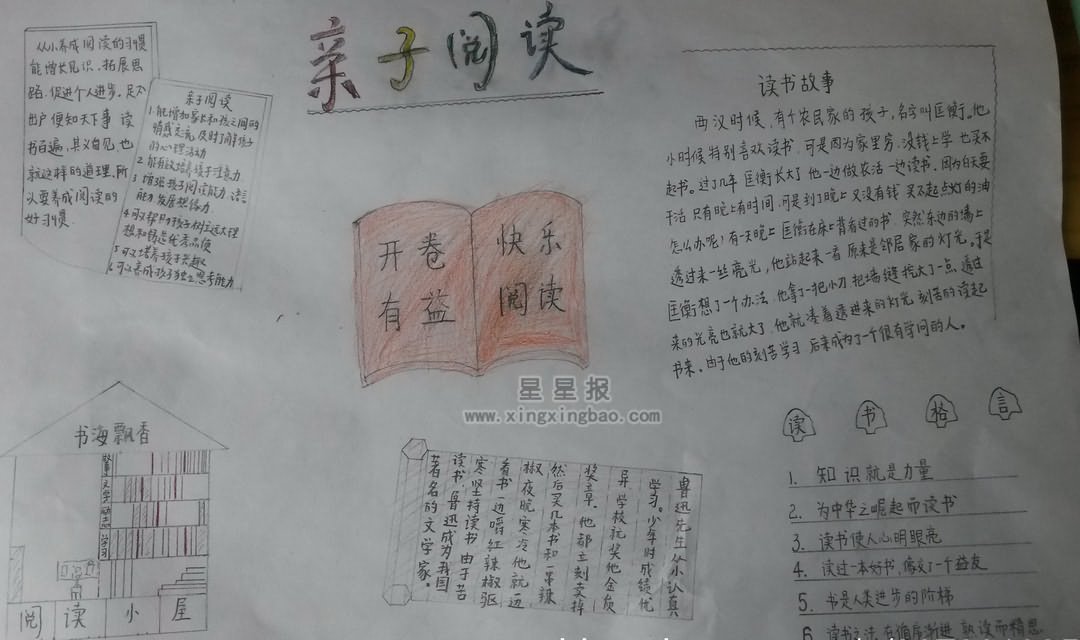 亲子阅读
从小养成阅读的习惯
能增长见识、拓展思
路、促进个人进步。足不
出户便知天下事 读
书百遍，其义自见 也
就这样的道理，所
以要养成阅读的
好习惯
亲子阅读
1.能增加家长和孩子之间的
情感交流，及时了解孩子
的心理活动
2 能有效培养孩子注意力
3 增强孩子阅读能力、语言
能力发展想像力
4 可以帮助孩子树立远大理
想和铸造优秀品德
5 可以培养孩子
6 可以养成孩子独立思考能力
开卷
有益
快乐
阅读
读书故事
西汉时候，有个农民家的孩子，名字叫匡衡。他
小时候特别喜欢读书，可是因为家里穷，没钱上学 也买不
起书。过了几年 匡衡长大了 他一边做农活一边读书，因为白天要
干活 只有晚上有时间，可是到了晚上又没有钱 买不起点灯的油
怎么办呢？有一天晚上 匡衡在床上背看过的书 突然东边的墙上
透过来一丝亮光，他站起来一看 原来是邻居家的灯光。于是
匡衡想了一个办法 他拿了一把小刀 把墙缝挖大了一点 透过
来的光亮也就大了 他就凑着透进来的灯光 刻苦的读起
书来。由于他的刻苦学习 后来成为了一个很有学问的人。
星星报
www.xingxingbao.com
书海飘香
故事
文学
励志
学习
阅读小屋
鲁迅先生从小认真
学习。少年时成绩优
异 学校就奖他金质
奖章。他都立刻卖掉
然后买几本书和一串辣
椒 夜晚寒冷他就边
看书一边嚼红辣椒驱
寒 坚持读书 由于苦
读书 鲁迅成为我国
著名的文学家。
读书格言
1. 知识就是力量
2. 为中华之崛起而读书
3. 读书使人心明眼亮
4. 读过一本好书，像交了一个益友
5. 书是人类进步的阶梯
6 读书之法 在循序渐进 熟读而精思